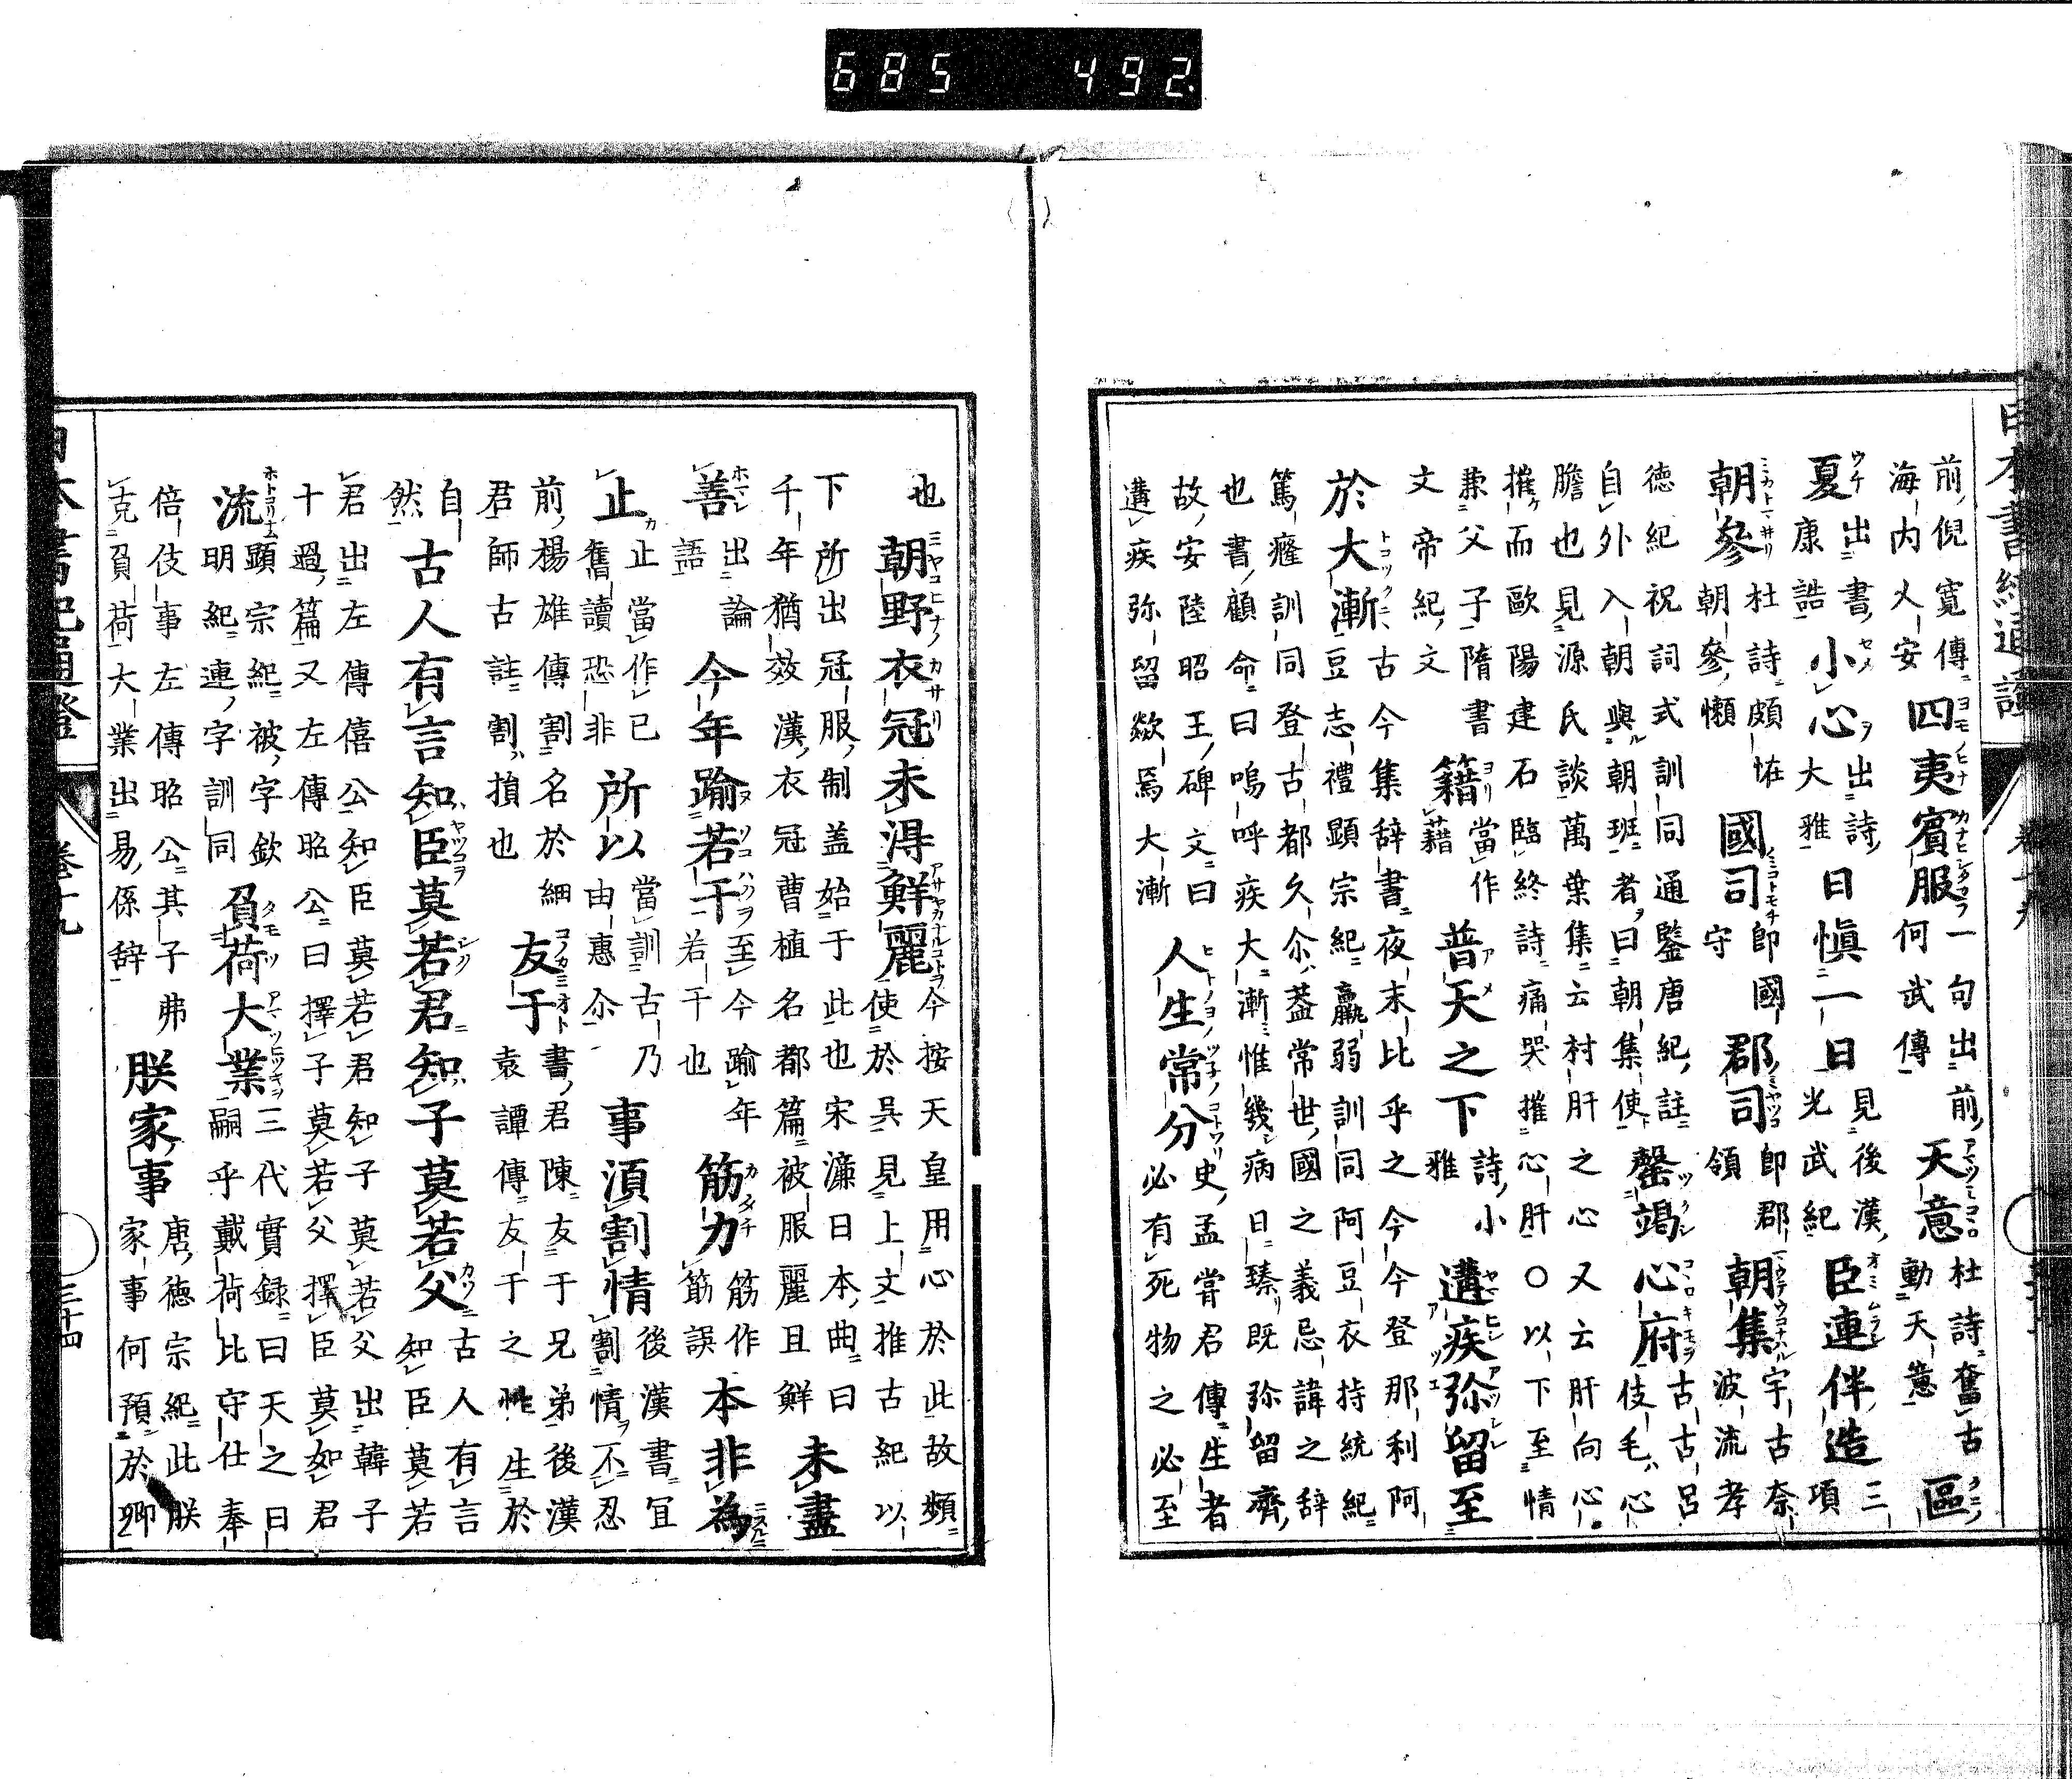 685 492
前倪寛傳四夷賓服一句出前天意杜詩奮古區
海内乂安何武傳動天意
夏出書小心出詩曰愼一日見後漢臣連伴造三
康誥大雅光武紀項
朝參杜詩頗恠國司即國郡司即郡朝集宇古奈
朝參懶守領波流孝
德紀祝詞式訓同通鑒唐紀註罄竭心府古古呂
自外入朝與朝班者曰朝集使伎毛心
膽也見源氏談萬葉集云村肝之心又云肝向心
摧而歐陽建石臨終詩痛哭摧心肝○以下至情
兼父子隋書籍當作普天之下詩小遘疾弥留至
文帝紀文藉雅
於大漸古今集辞書夜末比乎之今今登那利阿
豆志禮顯宗紀羸弱訓同阿豆衣持統紀
篤癃訓同登古都久尒葢常世國之義忌諱之辞
也書顧命曰嗚呼疾大漸惟幾病日臻既弥留齊
故安陸昭王碑文曰人生常分史孟甞君傳生者
遘疾弥留歘焉大漸必有死物之必至
也朝野衣冠未得鮮麗今按天皇用心於此故類
使於呉見上文推古紀以
下所出冠服制盖始于此也宋濂日本曲曰未盡
千年猶效漢衣冠曹植名都篇被服麗且鮮
善出論今年踰若干至今踰年筋力筋作本非為
語若干也筋誤
止止當作已所以當訓古乃事湏割情後漢書冝
舊讀恐非由惠尒割情不忍
前楊雄傳割名於細友于書君陳友于兄弟後漢
君師古註割損也袁譚傳友于之性生於
自古人有言知臣莫若君知子莫若父古人有言
然知臣莫若
君出左傳僖公知臣莫若君知子莫若父出韓子
十過篇又左傳昭公曰擇子莫若父擇臣莫如君
流顯宗紀被字欽負荷大業三代實録曰天之日
明紀連字訓同嗣乎戴荷比守仕奉
倍伎事左傳昭公其子弗朕家事唐德宗紀此朕
克負荷大業出易係辞家事何預於卿
日本書紀通證
卷十九
三十四